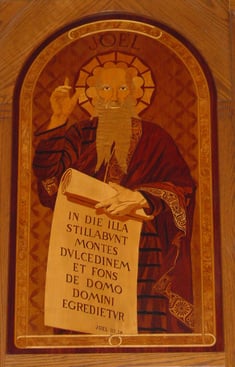 JOEL
IN DIE ILLA
STILLABVNT
MONTES
DVLCEDINEM
ET FONS
DE DOMO
DOMINI
EGREDIETVR